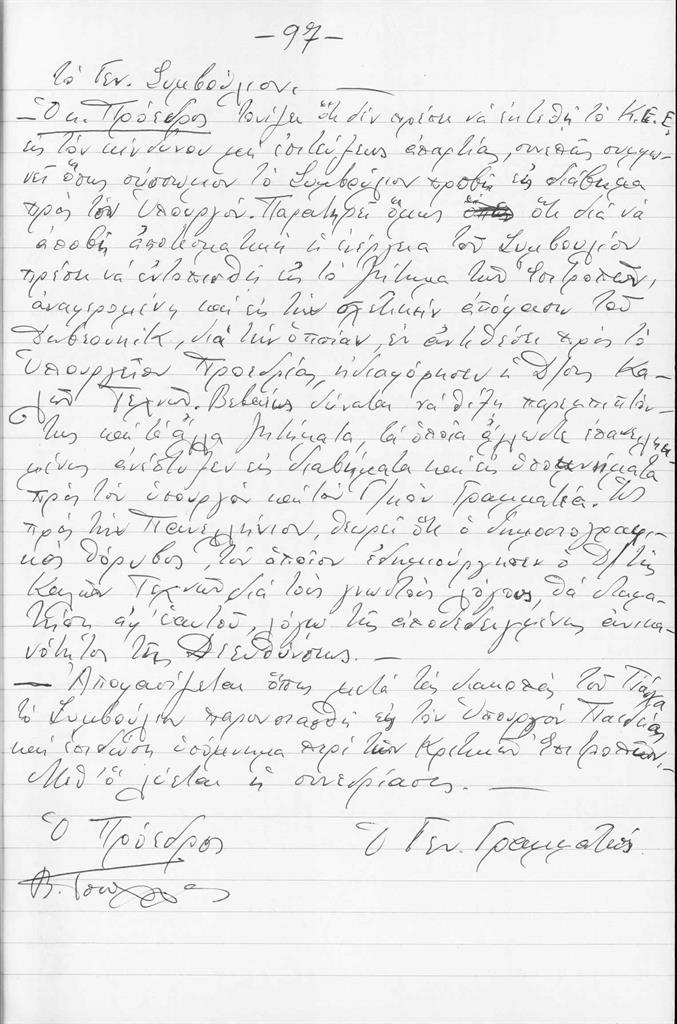 – 97 –
τὸ Γεν. Συμβούλιον. —
– Ὁ κ. Πρόεδρος τονίζει ὅτι δὲν πρέπει νὰ ἐκτεθῇ τὸ Κ.Ε.Ε.
εἰς τὸν κίνδυνον μὴ ἐπιτεύξεως ἀπαρτίας, συνεπῶς συμφω-
νεῖ ὅπως σύσσωμον τὸ Συμβούλιον προβῇ εἰς διάβημα
πρὸς τὸν Ὑπουργόν. Παρατηρεῖ ὅμως ὅτι διὰ νὰ
ἀποβῇ ἀποτελεσματικὴ ἡ ἐνέργεια τοῦ Συμβουλίου
πρέπει νὰ ἐντοπισθῇ εἰς τὸ ζήτημα τῶν Ἐπιτροπῶν,
ἀναφερομένη καὶ εἰς τὴν σχετικὴν ἀπόφασιν τοῦ
Ντυβρουνίκ, διὰ τὴν ὁποίαν, ἐν ἀντιθέσει πρὸς τὸ
Ὑπουργεῖον Προεδρίας, ἠδιαφόρησεν ἡ Δ/σις Κα-
λῶν Τεχνῶν. Βεβαίως δύναται νὰ θίξῃ παρεμπιπτόν-
τως καὶ τὰ ἄλλα ζητήματα, τὰ ὁποῖα ἄλλωστε ἐπανειλημ-
μένως ἀνέπτυξεν εἰς διαβήματα καὶ εἰς ὑπομνήματα
πρὸς τὸν ὑπουργὸν καὶ τὸν Γ/κὸν Γραμματέα. Ὡς
πρὸς τὴν Πανελλήνιον, θεωρεῖ ὅτι ὁ δημοσιογραφι-
κὸς θόρυβος, τὸν ὁποῖον ἐδημιούργησεν ὁ Δ/τὴς
Καλῶν Τεχνῶν διὰ τοὺς γνωστοὺς λόγους, θὰ σταμα-
τήσῃ ἀφ' ἑαυτοῦ, λόγῳ τῆς ἀποδεδειγμένης ἀνικα-
νότητος τῆς Διευθύνσεως. –
– Ἀποφασίζεται ὅπως μετὰ τὰς διακοπὰς τοῦ Πάσχα
τὸ Συμβούλιον παρουσιασθῇ εἰς τὸν Ὑπουργὸν Παιδείας
καὶ ἐπιδώσῃ ὑπόμνημα περὶ τῶν Κριτικῶν Ἐπιτροπῶν. –
Μεθ' ὃ λύεται ἡ συνεδρίασις. —
Ὁ Πρόεδρος Ὁ Γεν. Γραμματεύς.